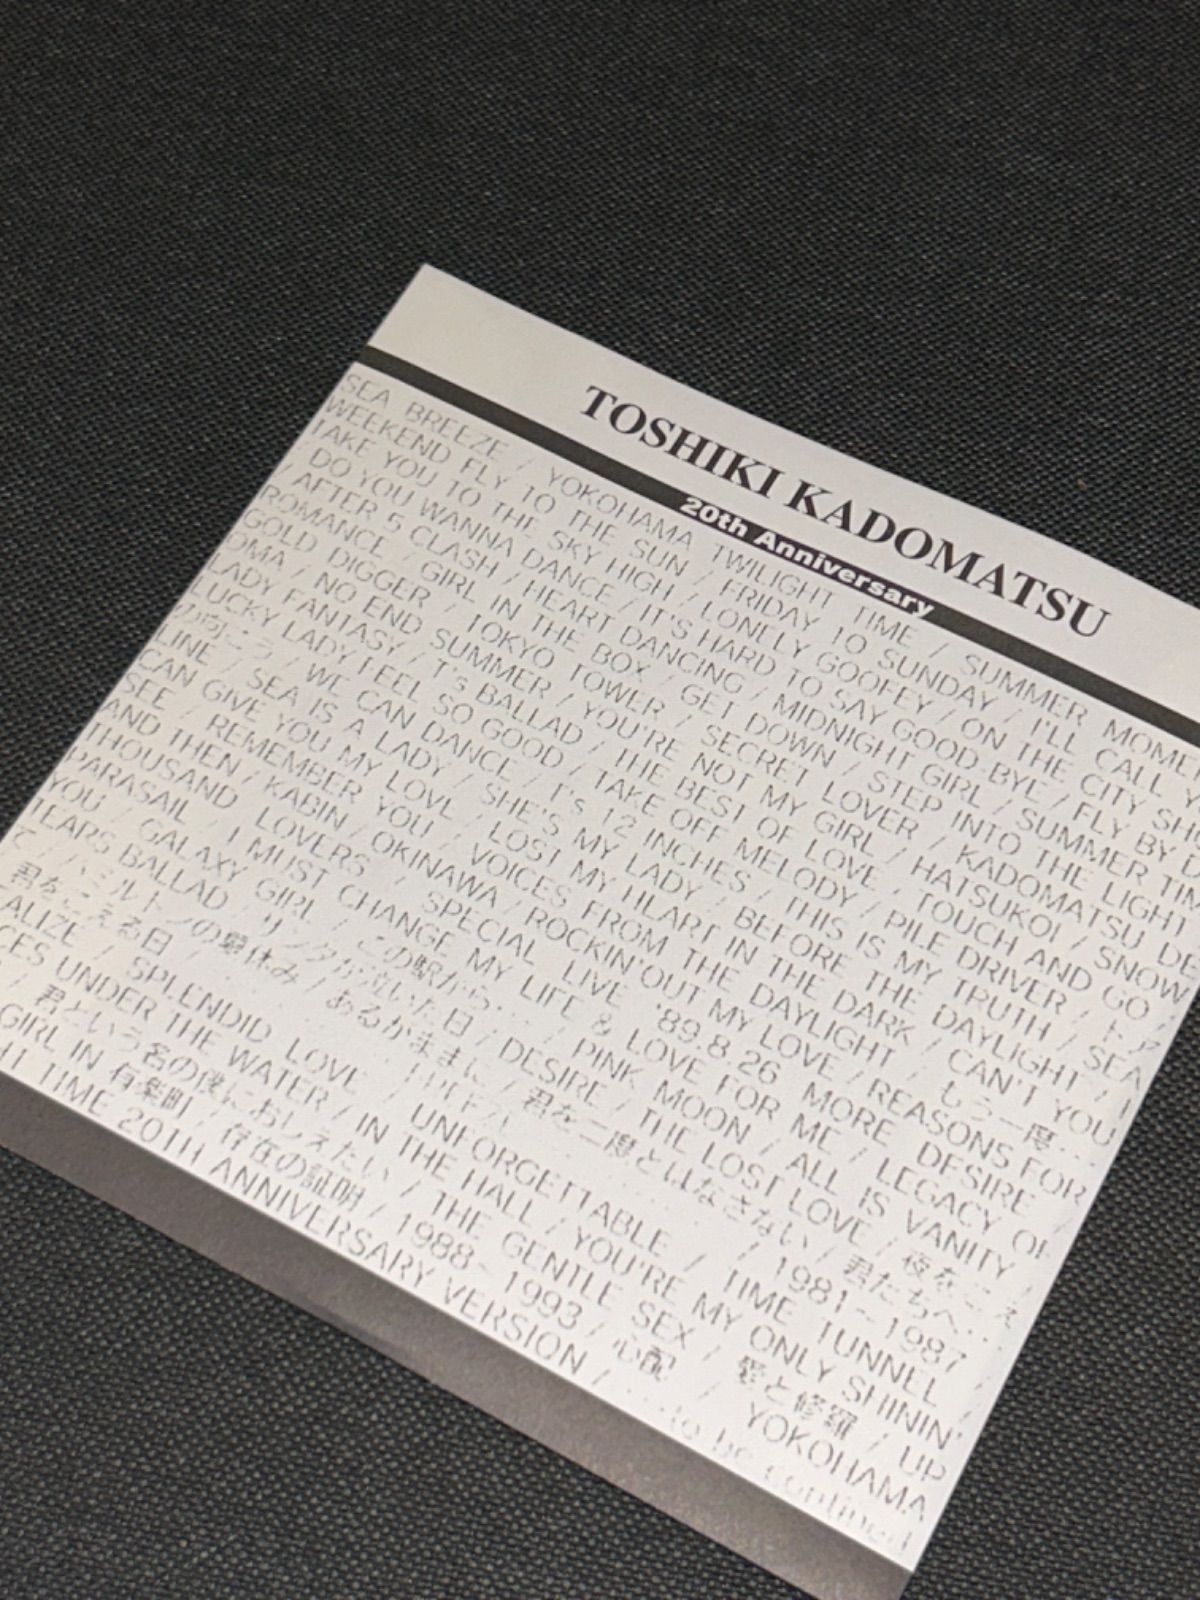 TOSHIKI KADOMATSU
20th Anniversary
SEA BREEZE / YOKOHAMA TWILIGHT TIME / SUMMER
WEEKEND FLY TO THE SUN / FRIDAY TO SUNDAY / I'LL CALL
TAKE YOU TO THE SKY HIGH / LONELY GOOFEY / ON THE CITY
/ DO YOU WANNA DANCE / IT'S HARD TO SAY GOOD BYE / FLY BY
/ AFTER 5 CLASH / HEART DANCING / MIDNIGHT GIRL / SUMMER TIME
ROMANCE / GIRL IN THE BOX / GET DOWN / STEP INTO THE LIGHT
GOLD DIGGER / TOKYO TOWER / SECRET LOVER / KADOMATSU
OMA / NO END SUMMER / YOU'RE NOT MY GIRL / HATSUKOI / SNOW
LADY FANTASY / T's BALLAD / THE BEST OF LOVE / TOUCH AND GO /
LUCKY LADY FEEL SO GOOD / TAKE OFF MELODY / PILE DRIVER / ドア
の向こう / WE CAN DANCE / T's 12 INCHES / THIS IS MY TRUTH / SEA
LINE / SEA IS A LADY / SHE'S MY LADY / BEFORE THE DAYLIGHT / I
CAN GIVE YOU MY LOVE / LOST MY HEART IN THE DARK / CAN'T YOU
SEE / REMEMBER YOU / VOICES FROM THE DAYLIGHT / もう一度…
AND THEN / KABIN / OKINAWA / ROCKIN'OUT MY LOVE / REASONS FOR
THOUSAND LOVERS / SPECIAL LIVE '89.8.26 MORE DESIRE /
PARASAIL / I MUST CHANGE MY LIFE & LOVE FOR ME / LEGACY OF
YOU / GALAXY GIRL / この駅から… / PINK MOON / ALL IS VANITY /
TEARS BALLAD / リンダが泣いた日 / DESIRE / THE LOST LOVE / 夜をこえ
て / ハミルトンの夏休み / あるがままに / 君を二度とはなさない / 君たちへ…
君をこえる日 / 1981~1987 /
ALIZE / SPLENDID LOVE / UNFORGETTABLE / TIME TUNNEL /
CES UNDER THE WATER / IN THE HALL / YOU'RE MY ONLY SHININ'
/ 君という名の僕におしえたい / THE GENTLE SEX / 愛と修羅 / UP
GIRL IN 有楽町 / 存在の証明 / 1988~1993 / 心配 / YOKOHAMA
TIME 20TH ANNIVERSARY VERSION / ...to be continued